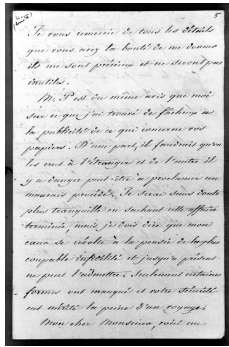 5
Je vous remercie de tous les détails
que vous avez la bonté de me donner
ils me sont précieux et ne seront pas
inutiles.
M. P est du même avis que moi
sur ce que j'ai trouvé de fâcheux à
la publicité de ce qui concerne vos
papiers. D'une part, il faudrait qu'on
les crut à l'étranger et de l'autre il
y a danger peut être à proclamer un
mauvais procédé. Je serai sans doute
plus tranquille en sachant cette affaire
terminée, mais je dois dire que mon
cœur se révolte à la pensée de la plus
coupable infidélité et jusqu'à présent
ne peut l'admettre. Seulement certaines
formes ont manqué et votre sécurité
eut mérité la peine d'un voyage.
Mon cher Monsieur, voici un